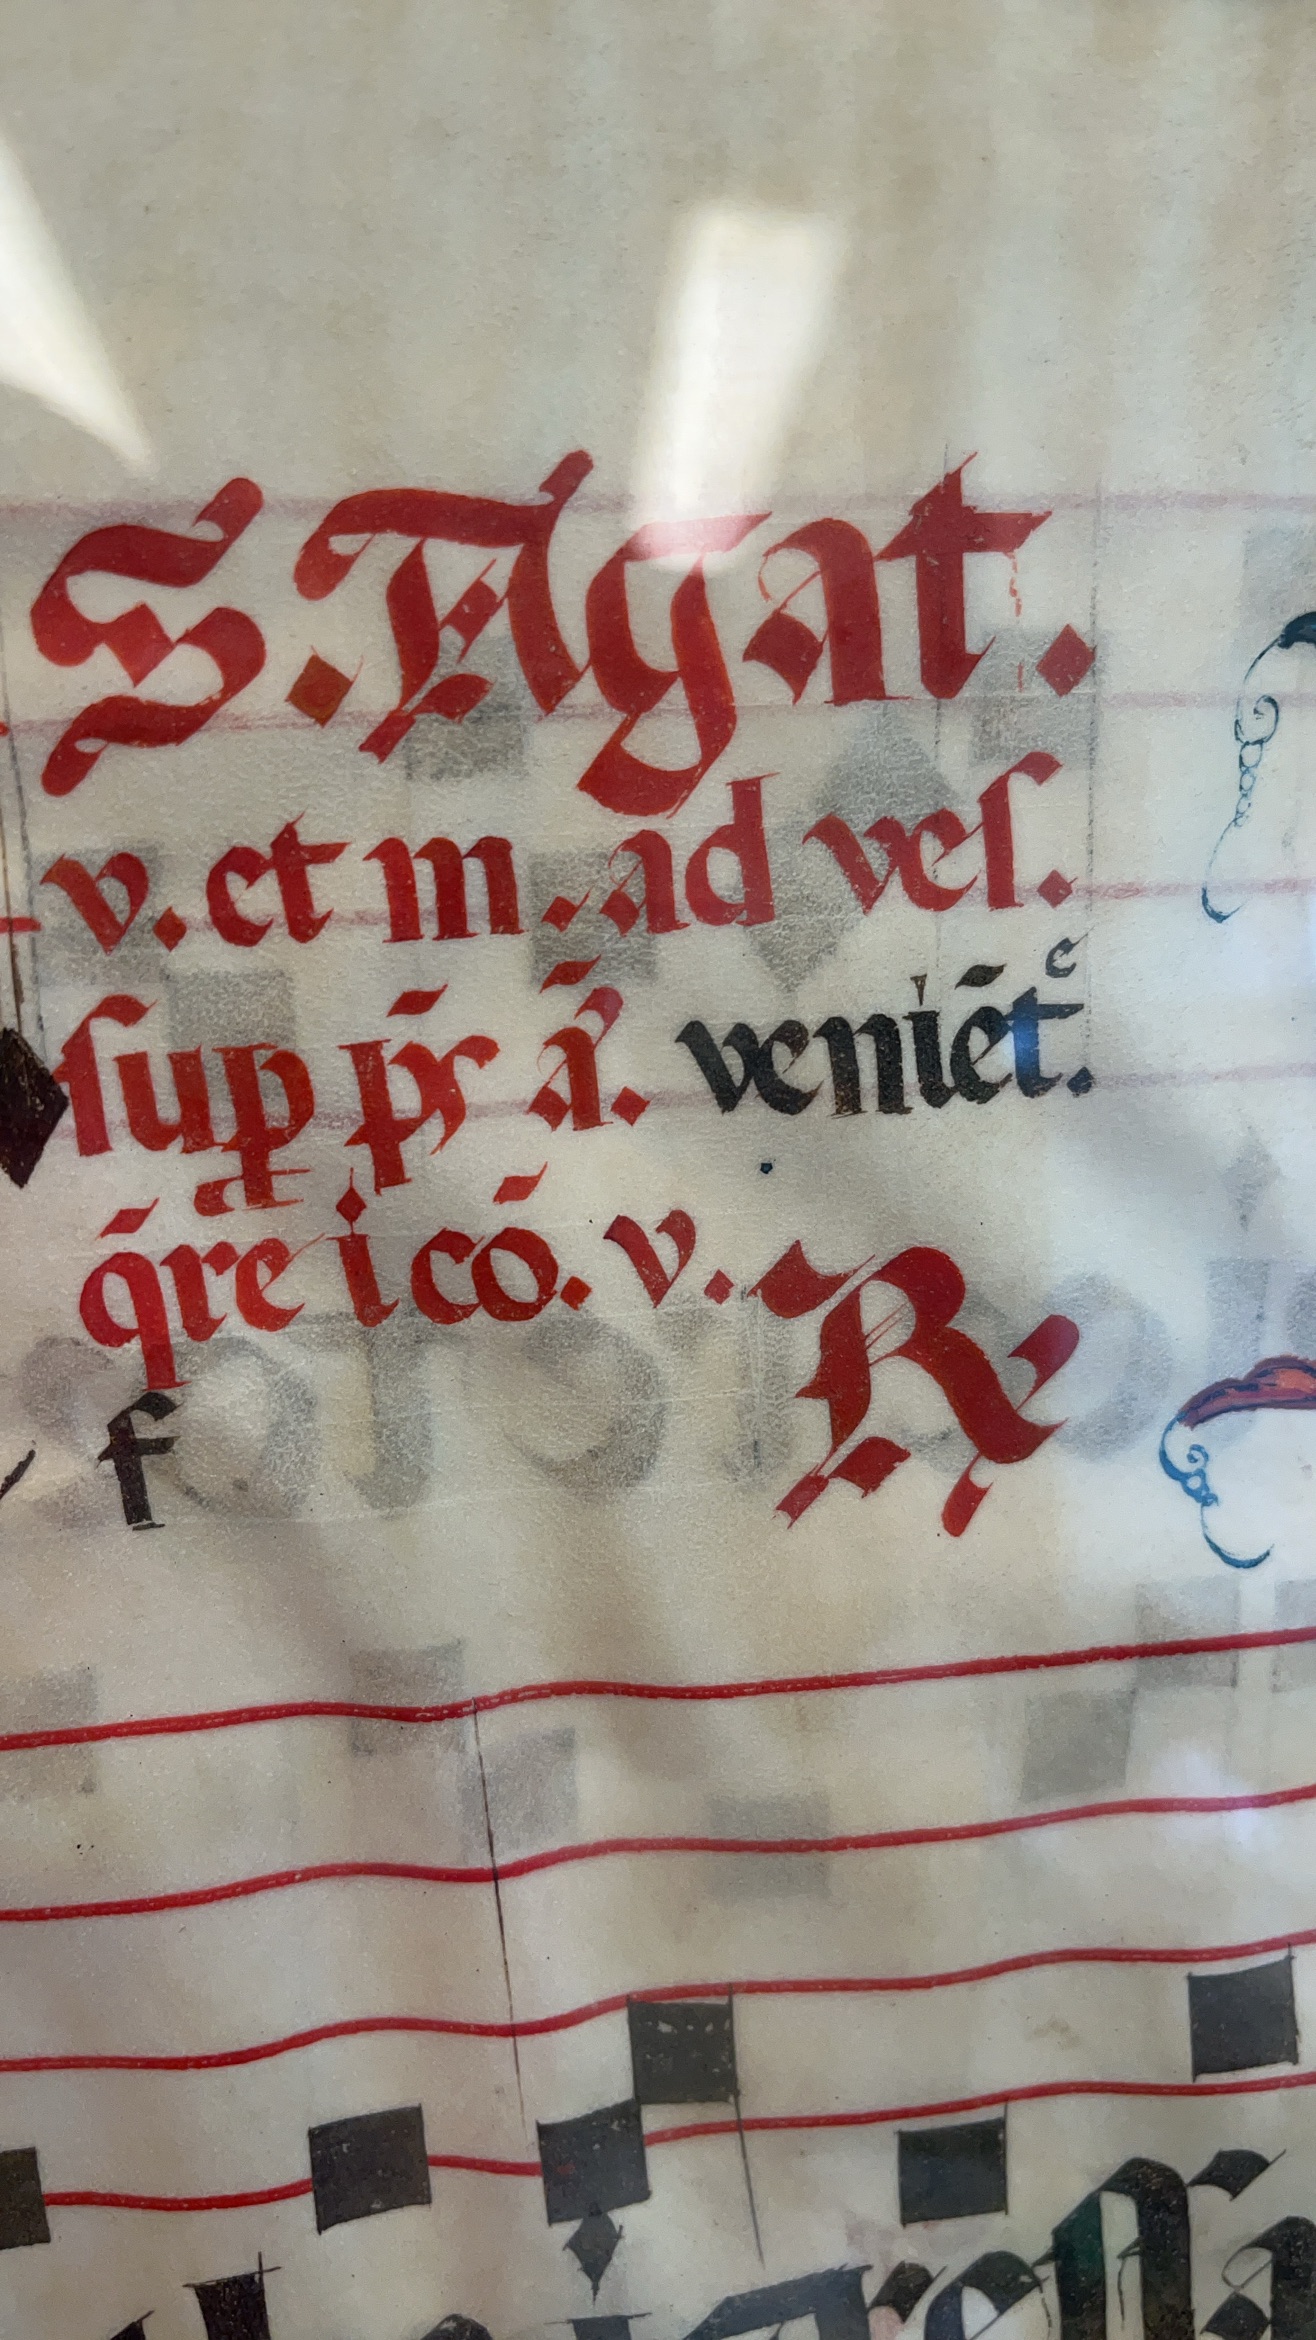 S. Agat.
v. et m. ad veſ.
ſup pſ̄ ā. veniēt.ᶜ
q̄re i cō. v. ℟
f